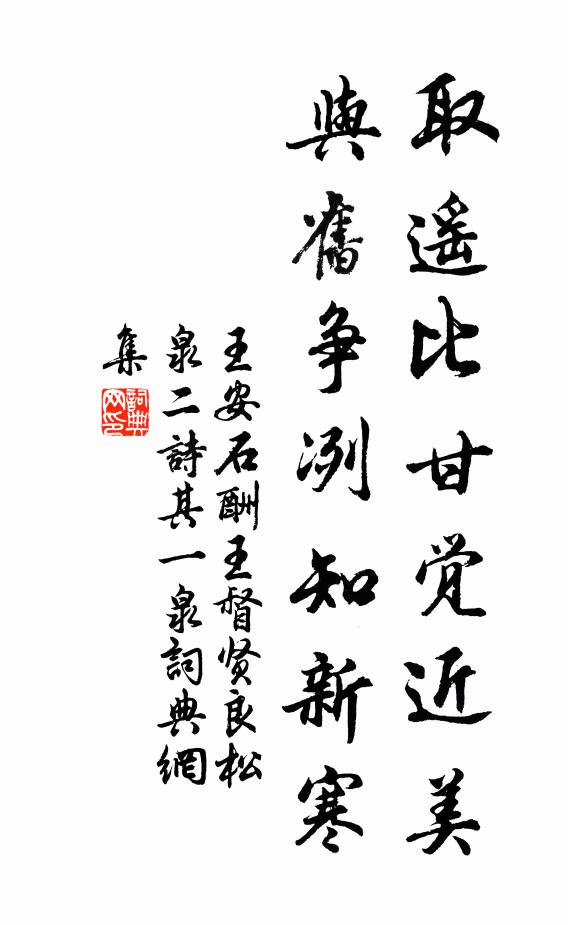 取遥比甘觉近美
與舊争冽知新寒
王安石酬王督贤良松
泉二詩其一泉詞典網
集
詞典网印